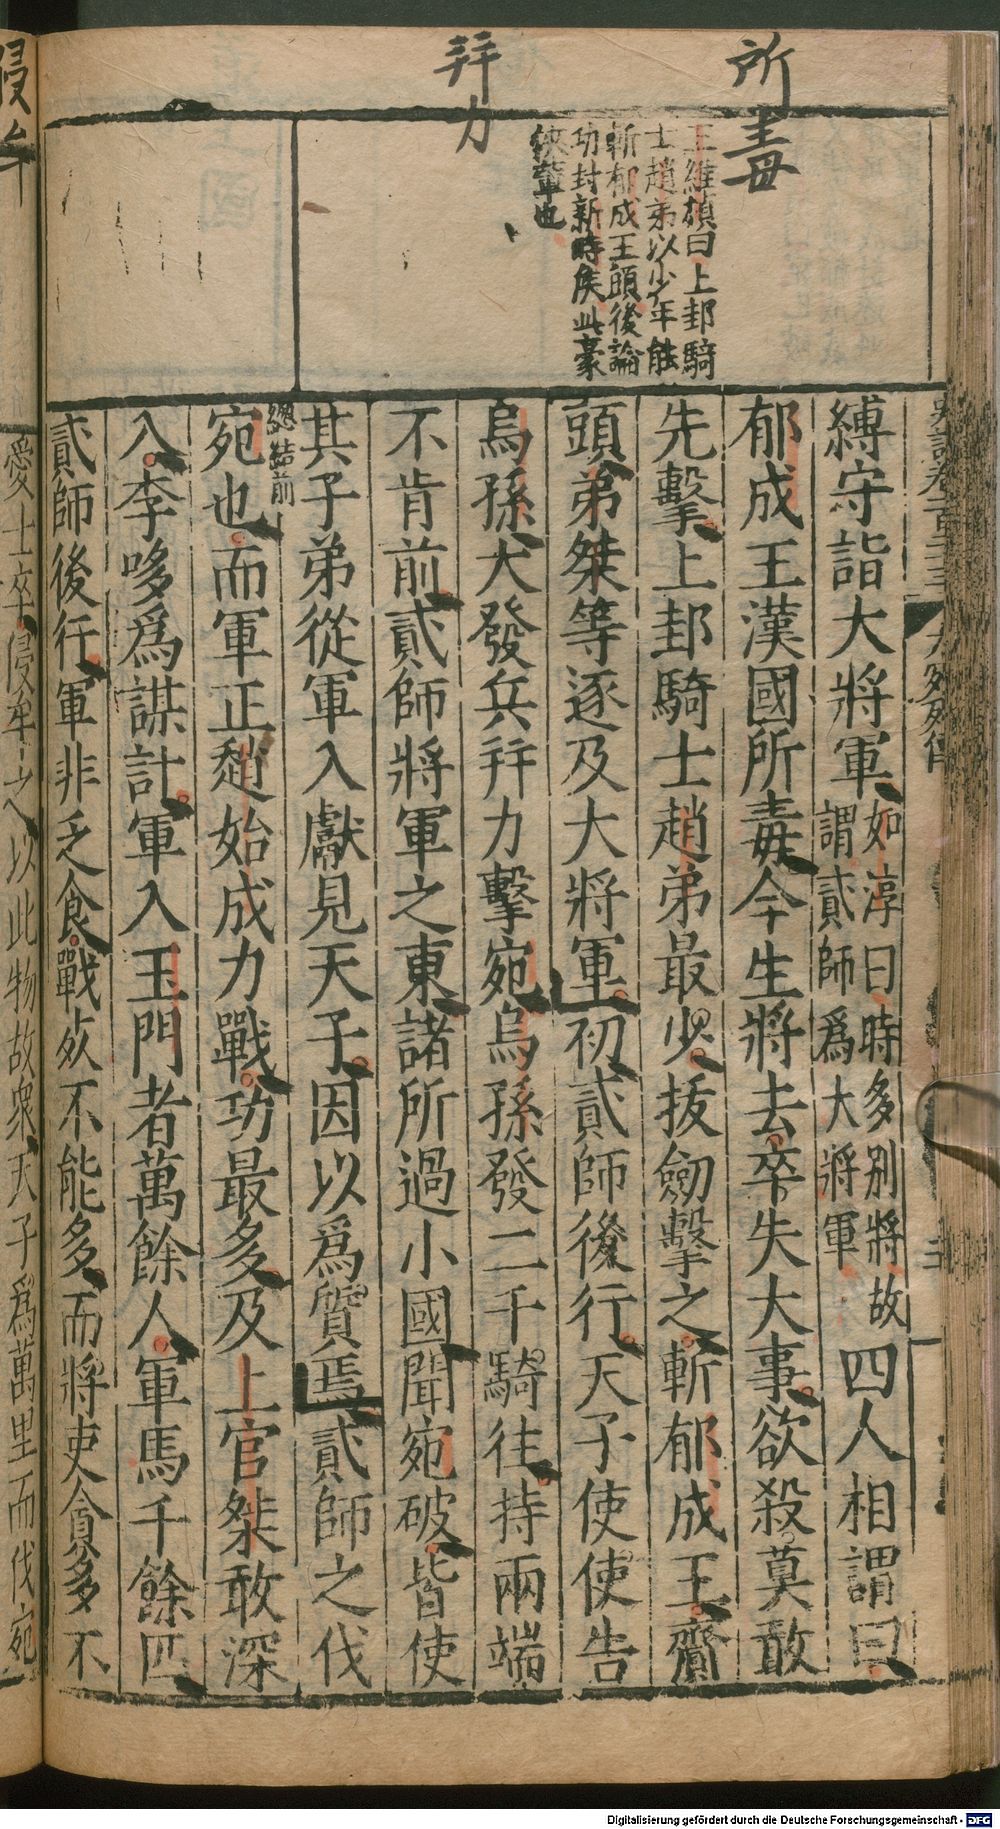 所毒
拜力
王維楨曰上邽騎
士趙弟以少年能
斬郁成王頭後論
功封新畤侯此豪
俠輩也
縛守詣大將軍如淳曰時多別將故謂貳師爲大將軍四人相謂曰
郁成王漢國所毒今生將去卒失大事欲殺莫敢
先擊上邽騎士趙弟最少拔劒擊之斬郁成王齎
頭弟桀等逐及大將軍初貳師後行天子使使告
烏孫大發兵幷力擊宛烏孫發二千騎往持兩端
不肯前貳師將軍之東諸所過小國聞宛破皆使
其子弟從軍入獻見天子因以爲質焉貳師之伐
總結前
宛也而軍正趙始成力戰功最多及上官桀敢深
入李哆爲謀計軍入玉門者萬餘人軍馬千餘匹
貳師後行軍非乏食戰死不能多而將吏貪多不
愛士卒侵牟之以此物故衆天子爲萬里而伐宛
侵牟
Digitalisierung gefördert durch die Deutsche Forschungsgemeinschaft - DFG